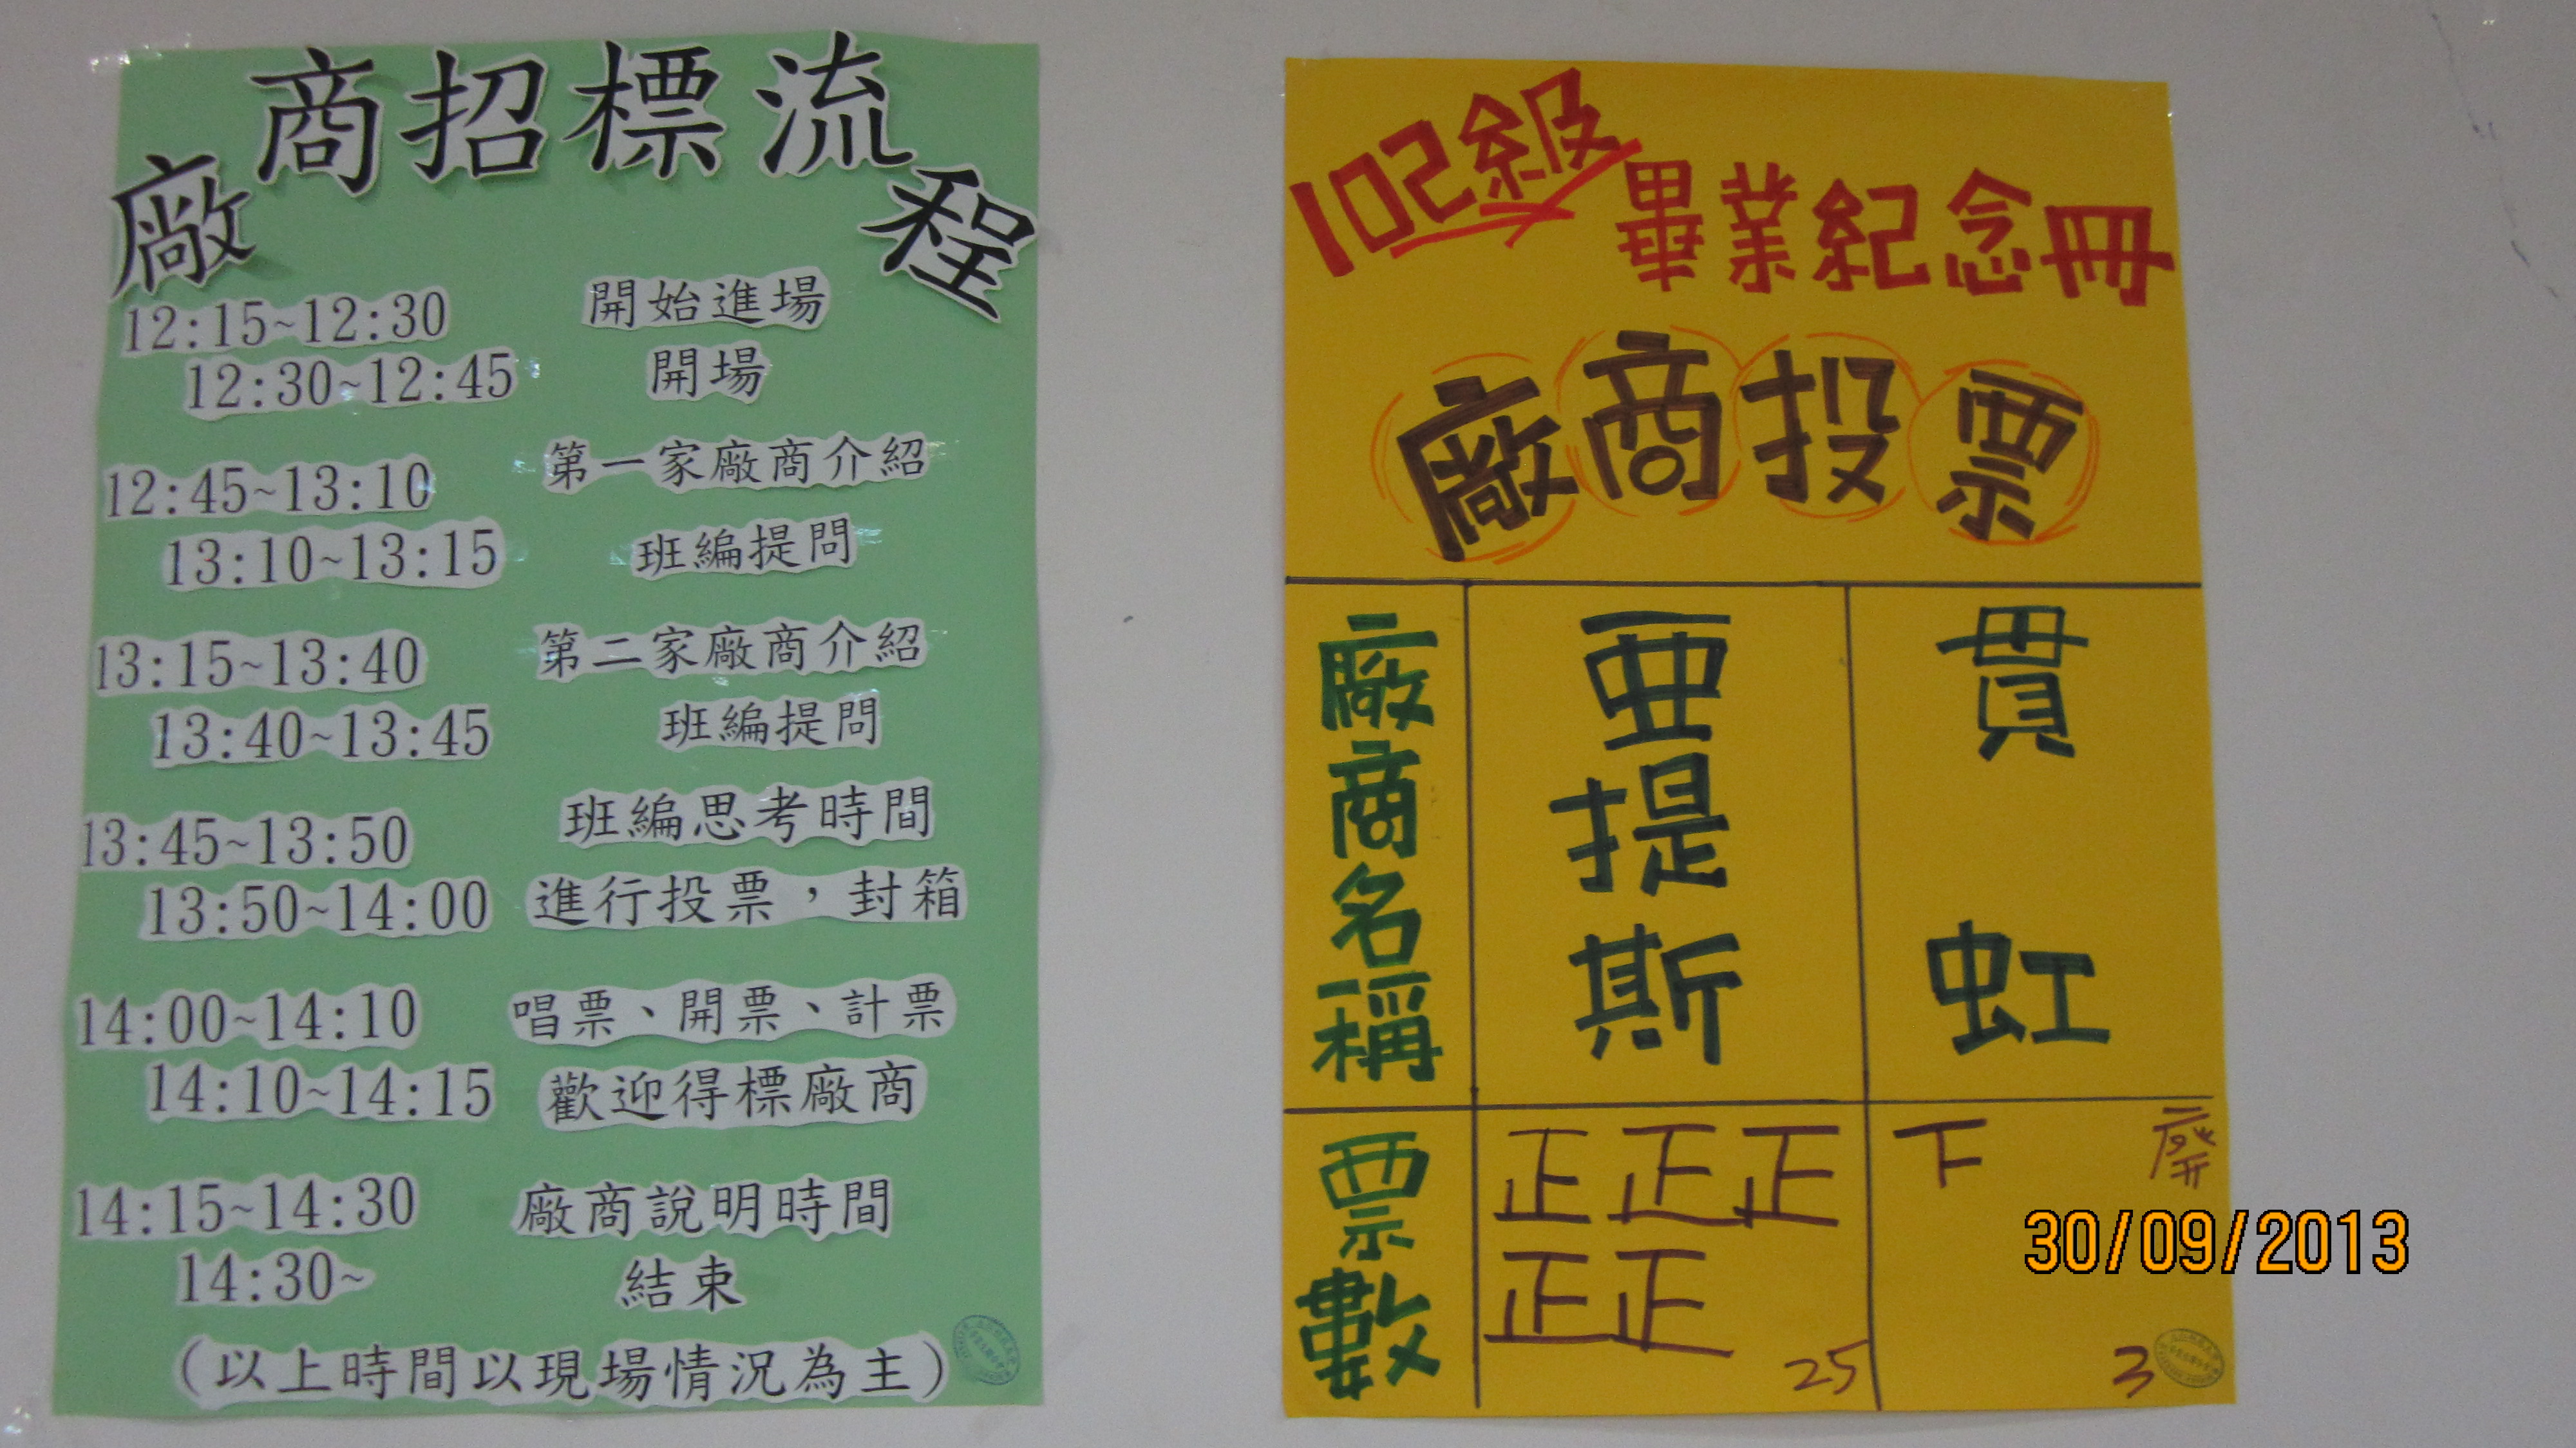 廠商招標流程
12:15~12:30 開始進場
12:30~12:45 開場
12:45~13:10 第一家廠商介紹
13:10~13:15 班編提問
13:15~13:40 第二家廠商介紹
13:40~13:45 班編提問
13:45~13:50 班編思考時間
13:50~14:00 進行投票，封箱
14:00~14:10 唱票、開票、計票
14:10~14:15 歡迎得標廠商
14:15~14:30 廠商說明時間
14:30~ 結束
(以上時間以現場情況為主)
102級
畢業紀念冊
廠商投票
廠商名稱
亞提斯
貫虹
票數
正正正
正正
25
下
廢
3
30/09/2013